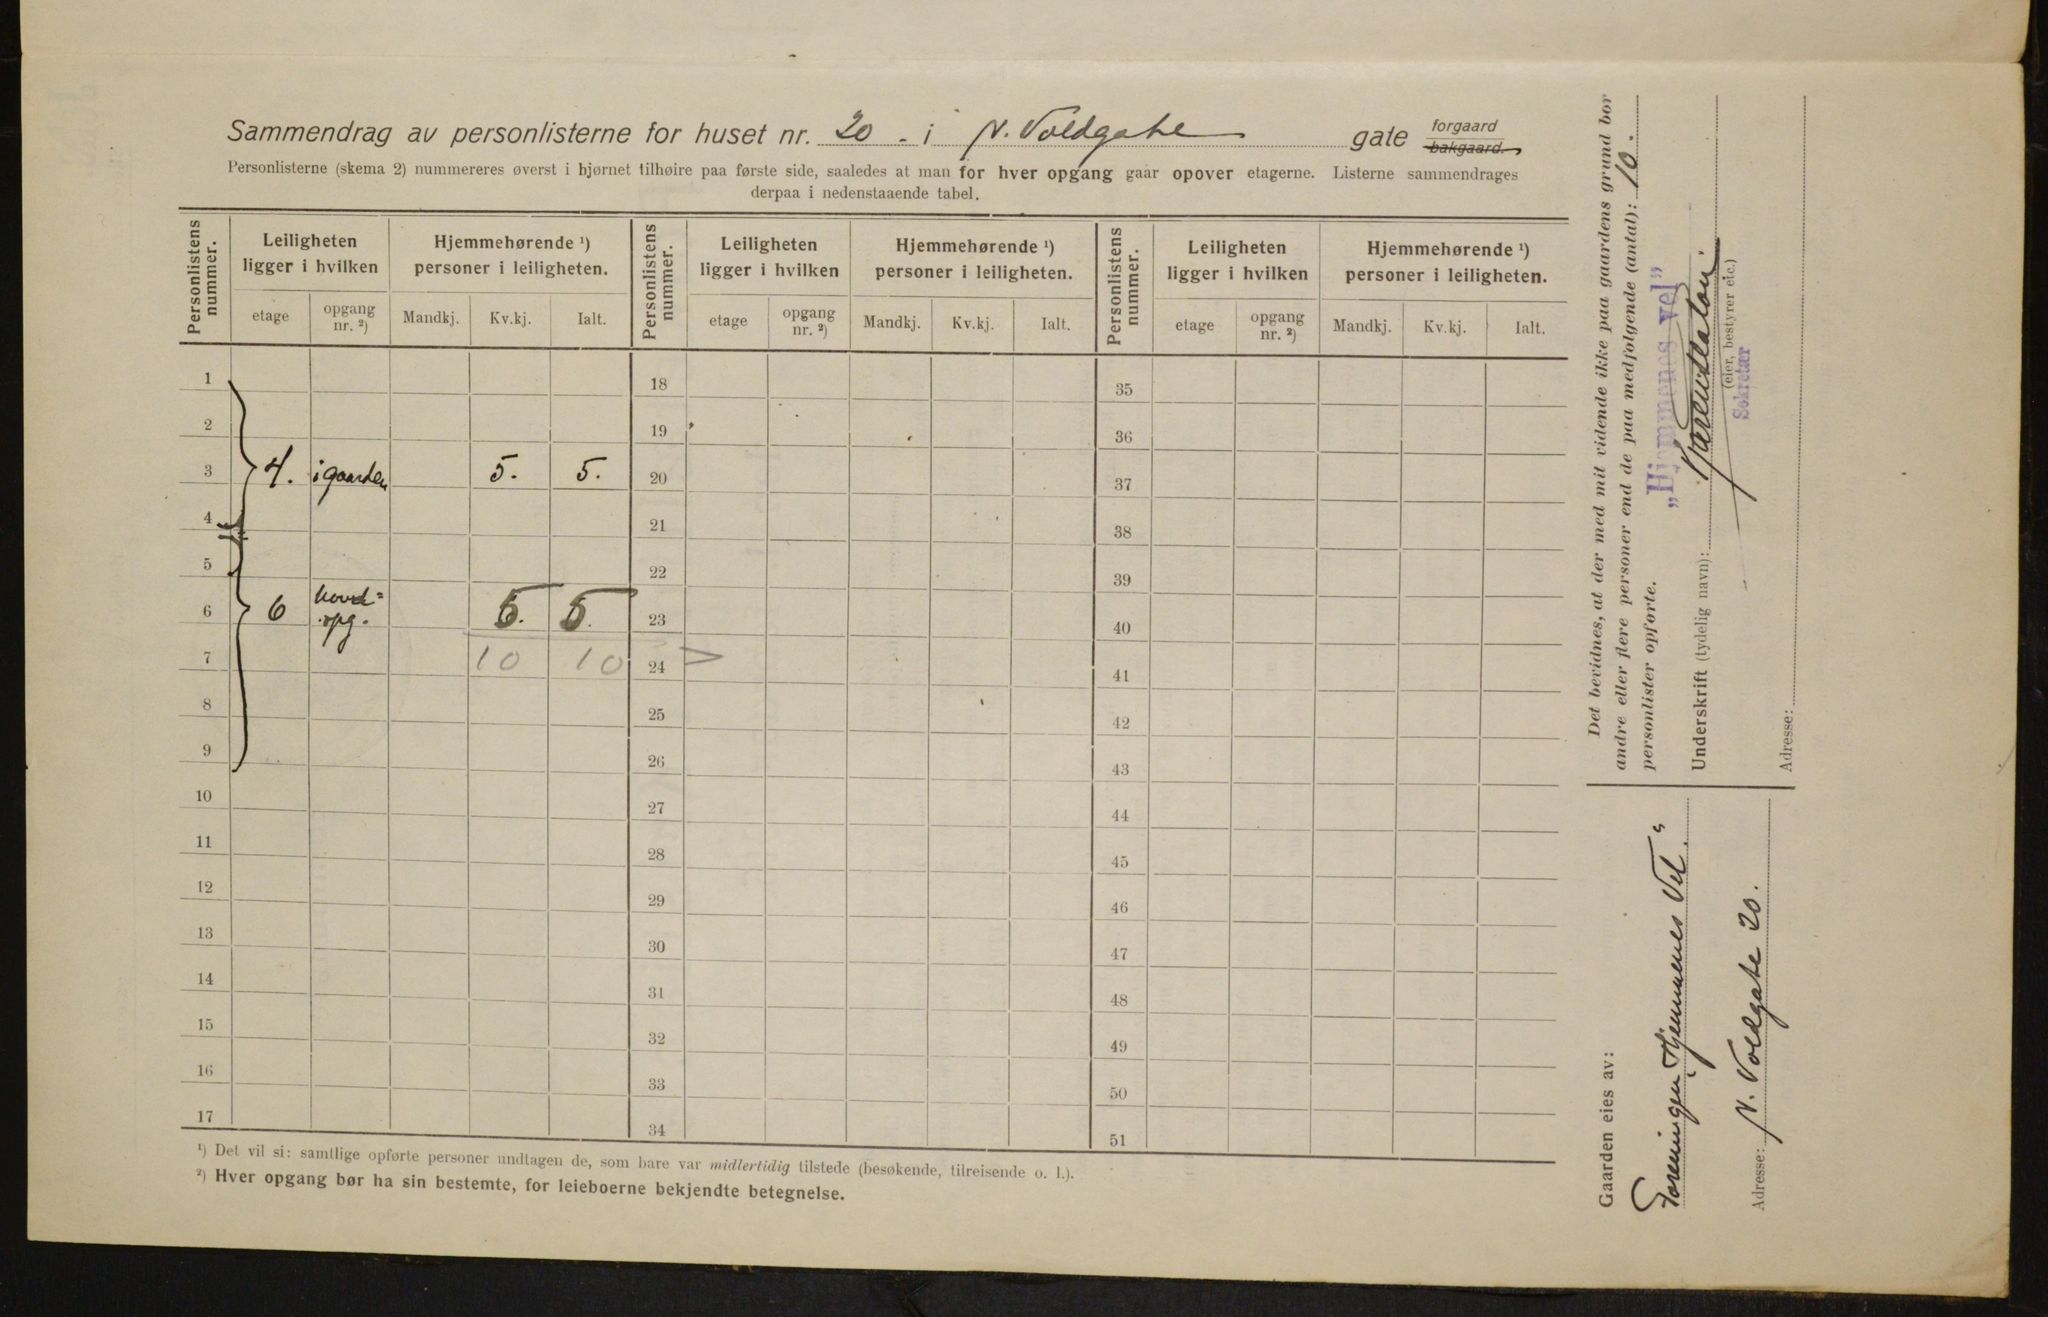 Sammendrag av personlisterne for huset nr. 20 - i N. Voldgate gate forgaard bakgaard.
Personlisterne (skema 2) nummereres øverst i hjørnet tilhøire paa første side, saaledes at man for hver opgang gaar opover etagerne. Listerne sammendrages
derpaa i nedenstaaende tabel.
Personlistens nummer. Leiligheten ligger i hvilken Hjemmehørende ¹) personer i leiligheten. Personlistens nummer. Leiligheten ligger i hvilken Hjemmehørende ¹) personer i leiligheten. Personlistens nummer. Leiligheten ligger i hvilken Hjemmehørende ¹) personer i leiligheten.
etage opgang nr. ²) Mandkj. Kv.kj. Ialt. etage opgang nr. ²) Mandkj. Kv.kj. Ialt. etage opgang nr. ²) Mandkj. Kv.kj. Ialt.
1 18 35
2 19 36
3 4. i gaarden 5. 5. 20 37
4 21 38
5 22 39
6 6 hovd= opg. 5. 5. 23 40
7 10 10 24 41
8 25 42
9 26 43
10 27 44
11 28 45
12 29 46
13 30 47
14 31 48
15 32 49
16 33 50
17 34 51
¹) Det vil si: samtlige opførte personer undtagen de, som bare var midlertidig tilstede (besøkende, tilreisende o. l.).
²) Hver opgang bør ha sin bestemte, for leieboerne bekjendte betegnelse.
Det bevidnes, at der med mit vidende ikke paa gaardens grund bor
andre eller flere personer end de paa medfølgende (antal): 10.
personlister opførte.
„Hjemmenes vel"
Underskrift (tydelig navn):
(eier, bestyrer etc.)
Sekretær
Adresse:
Gaarden eies av:
Foreningen „Hjemmenes Vel"
Adresse: N. Voldgate 20.